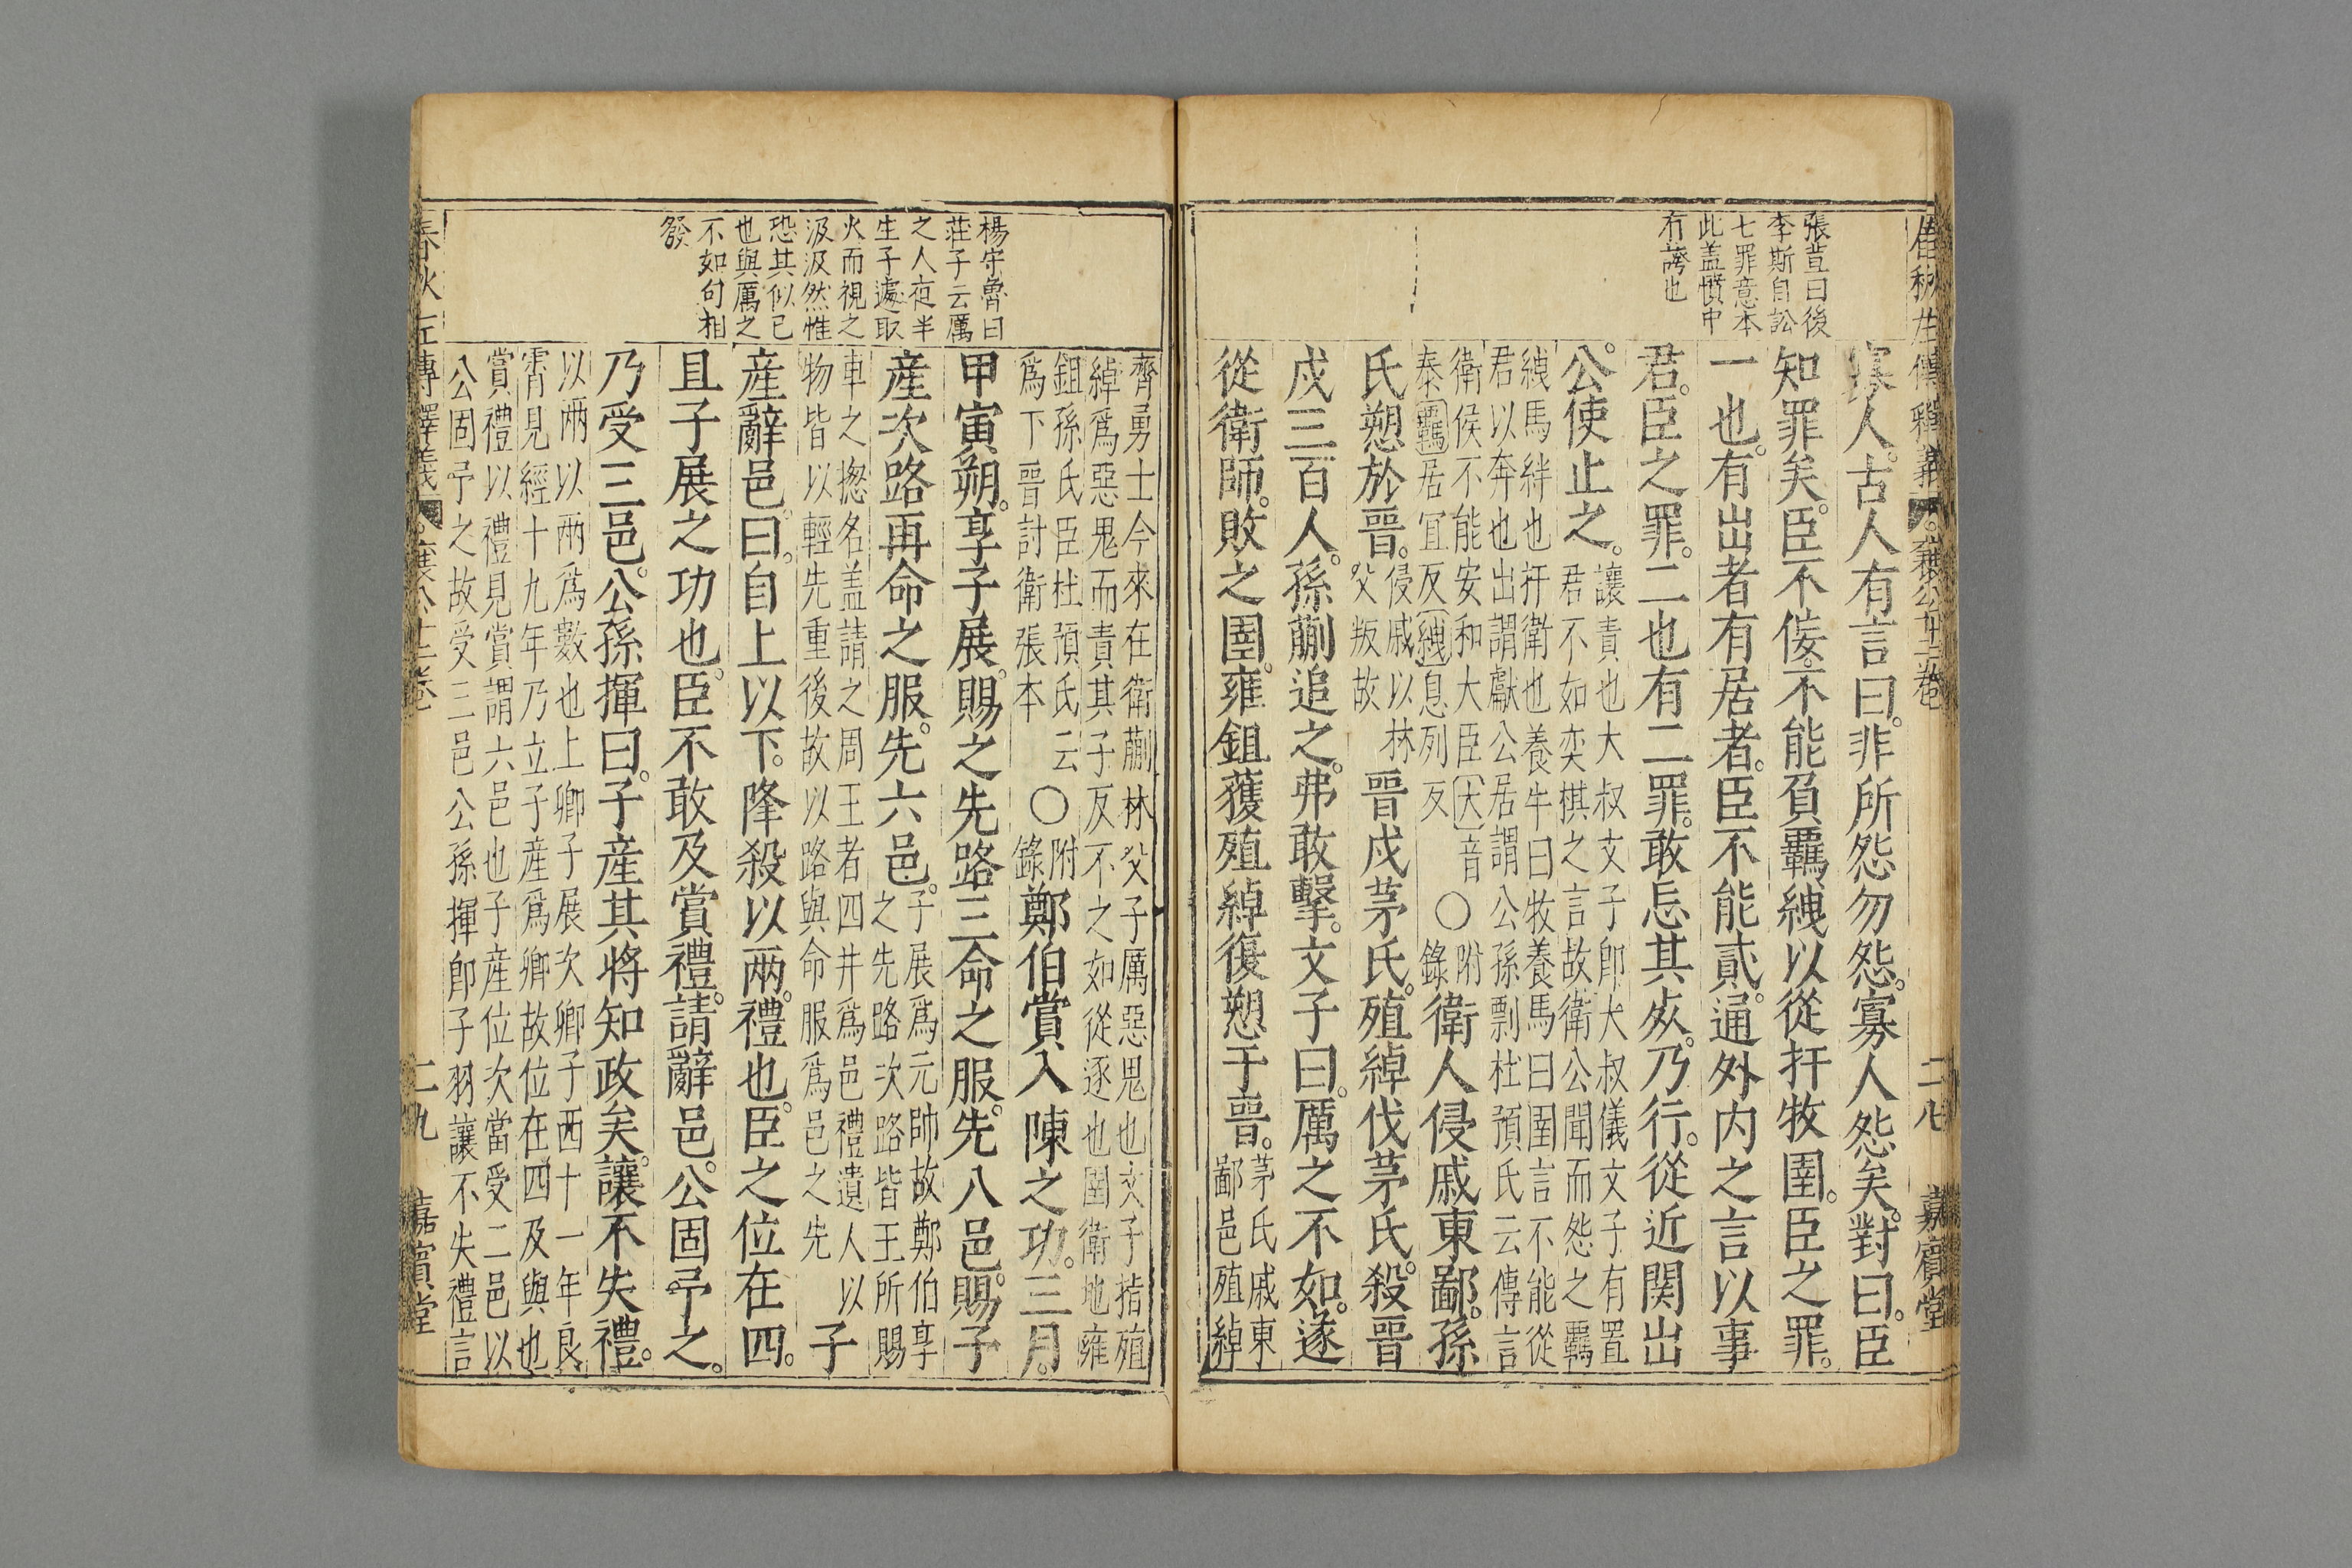 春秋左傳釋義 襄公十二卷 二八 嘉賓堂
張萱曰後
李斯自訟
七罪意本
此盖憤中
有誇也
寡人。古人有言曰。非所怨勿怨。寡人怨矣。對曰。臣
知罪矣。臣不佞。不能負羈絏以從扞牧圉。臣之罪。
一也。有出者有居者。臣不能貳。通外内之言以事
君。臣之罪。二也有二罪。敢忘其死。乃行。從近関出
公。使止之。
讓責也大叔文子卽大叔儀文子有置
君不如奕棋之言故衛公聞而怨之羈
絏馬絆也扞衛也養牛曰牧養馬曰圉言不能從
君以奔也出謂獻公居謂公孫剽杜預氏云傳言
衛侯不能安和大臣大音
泰羈居冝反絏息列反
〇附錄衛人侵戚東鄙。孫
氏愬於晉。
侵戚以林
父叛故
晉戍茅氏。殖綽伐茅氏。殺晉
戍三百人。孫蒯追之。弗敢擊。文子曰。厲之不如。遂
從衛師。敗之圉。雍鉏獲殖綽復愬于晉。
茅氏戚東
鄙邑殖綽
齊勇士今來在衛蒯林父子厲惡鬼也文子指殖
綽爲惡鬼而責其子反不之如從逐也圉衛地雍
鉏孫氏臣杜預氏云
爲下晉討衛張本
〇附錄鄭伯賞入陳之功。三月。
甲寅朔。享子展。賜之先路三命之服。先八邑。賜子
産次路再命之服。先六邑。
子展爲元帥故鄭伯享
之先路次路皆王所賜
車之揔名盖請之周王者四井爲邑禮遺人以
物皆以輕先重後故以路與命服爲邑之先
子
産辭邑。曰。自上以下。降殺以兩。禮也。臣之位在四。
且子展之功也。臣不敢及賞禮。請辭邑。公固予之。
乃受三邑。公孫揮曰。子産其將知政矣。讓不失禮。
以兩以兩爲數也上卿子展次卿子西十一年良
霄見經十九年乃立子産爲卿故位在四及與也
賞禮以禮見賞謂六邑也子産位次當受二邑以
公固予之故受三邑公孫揮卽子羽讓不失禮言
楊守魯曰
莊子云厲
之人夜半
生子遽取
火而視之
汲汲然惟
恐其似己
也與厲之
不如句相
發
春秋左傳釋義 襄公十二卷 二九 嘉賓堂